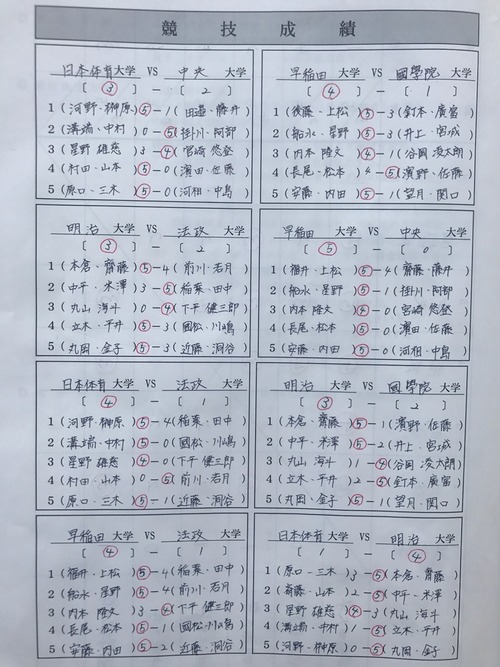 競技成績
日本体育大学 VS 中央 大学
[ ③ ] － [ 2 ]
1 (河野・榊原) ⑤－1 (田邉・藤井)
2 (溝端・中村) 0－⑤ (掛川・阿部)
3 (星野 雄慈) 3－④ (宮崎 悠登)
4 (村田・山本) ⑤－0 (濱田・佐藤)
5 (原口・三木) ⑤－0 (河相・中島)
早稲田 大学 VS 國學院 大学
[ ④ ] － [ 1 ]
1 (後藤・上松) ⑤－3 (釘本・廣富)
2 (船水・星野) ⑤－3 (井上・宮城)
3 (内本 隆文) ④－1 (谷岡 凌太朗)
4 (長尾・松本) 4－⑤ (濱野・佐藤)
5 (安藤・内田) ⑤－1 (望月・関口)
明治 大学 VS 法政 大学
[ ③ ] － [ 2 ]
1 (本倉・齊藤) ⑤－4 (前川・若月)
2 (中平・米澤) 3－⑤ (稲葉・田中)
3 (丸山 海斗) 0－④ (下平 健三郎)
4 (立木・平井) ⑤－3 (國松・川嶋)
5 (丸岡・金子) ⑤－3 (近藤・洞谷)
早稲田 大学 VS 中央 大学
[ ⑤ ] － [ 0 ]
1 (福井・上松) ⑤－4 (齋藤・藤井)
2 (船水・星野) ⑤－1 (掛川・阿部)
3 (内本 隆文) ④－0 (宮崎 悠登)
4 (長尾・松本) ⑤－0 (濱田・佐藤)
5 (安藤・内田) ⑤－0 (河相・中島)
日本体育 大学 VS 法政 大学
[ ④ ] － [ 1 ]
1 (河野・榊原) ⑤－4 (稲葉・田中)
2 (溝端・中村) ⑤－0 (國松・川嶋)
3 (星野 雄慈) ④－0 (下平 健三郎)
4 (村田・山本) 0－⑤ (前川・若月)
5 (原口・三木) ⑤－1 (近藤・洞谷)
明治 大学 VS 國學院 大学
[ ③ ] － [ 2 ]
1 (本倉・齊藤) ⑤－1 (濱野・佐藤)
2 (中平・米澤) ⑤－2 (井上・宮城)
3 (丸山 海斗) 1－④ (谷岡 凌太朗)
4 (立木・平井) 2－⑤ (釘本・廣富)
5 (丸岡・金子) ⑤－1 (望月・関口)
早稲田 大学 VS 法政 大学
[ ④ ] － [ 1 ]
1 (福井・上松) ⑤－4 (稲葉・田中)
2 (船水・星野) ⑤－4 (前川・若月)
3 (内本 隆文) 3－④ (下平 健三郎)
4 (長尾・松本) ⑤－1 (國松・川嶋)
5 (安藤・内田) ⑤－2 (近藤・洞谷)
日本体育 大学 VS 明治 大学
[ 1 ] － [ ④ ]
1 (原口・三木) 3－⑤ (本倉・齊藤)
2 (斎藤・山本) 2－⑤ (中平・米澤)
3 (星野 雄慈) ④－3 (丸山 海斗)
4 (溝端・中村) 1－⑤ (立木・平井)
5 (河野・榊原) 0－⑤ (丸岡・金子)